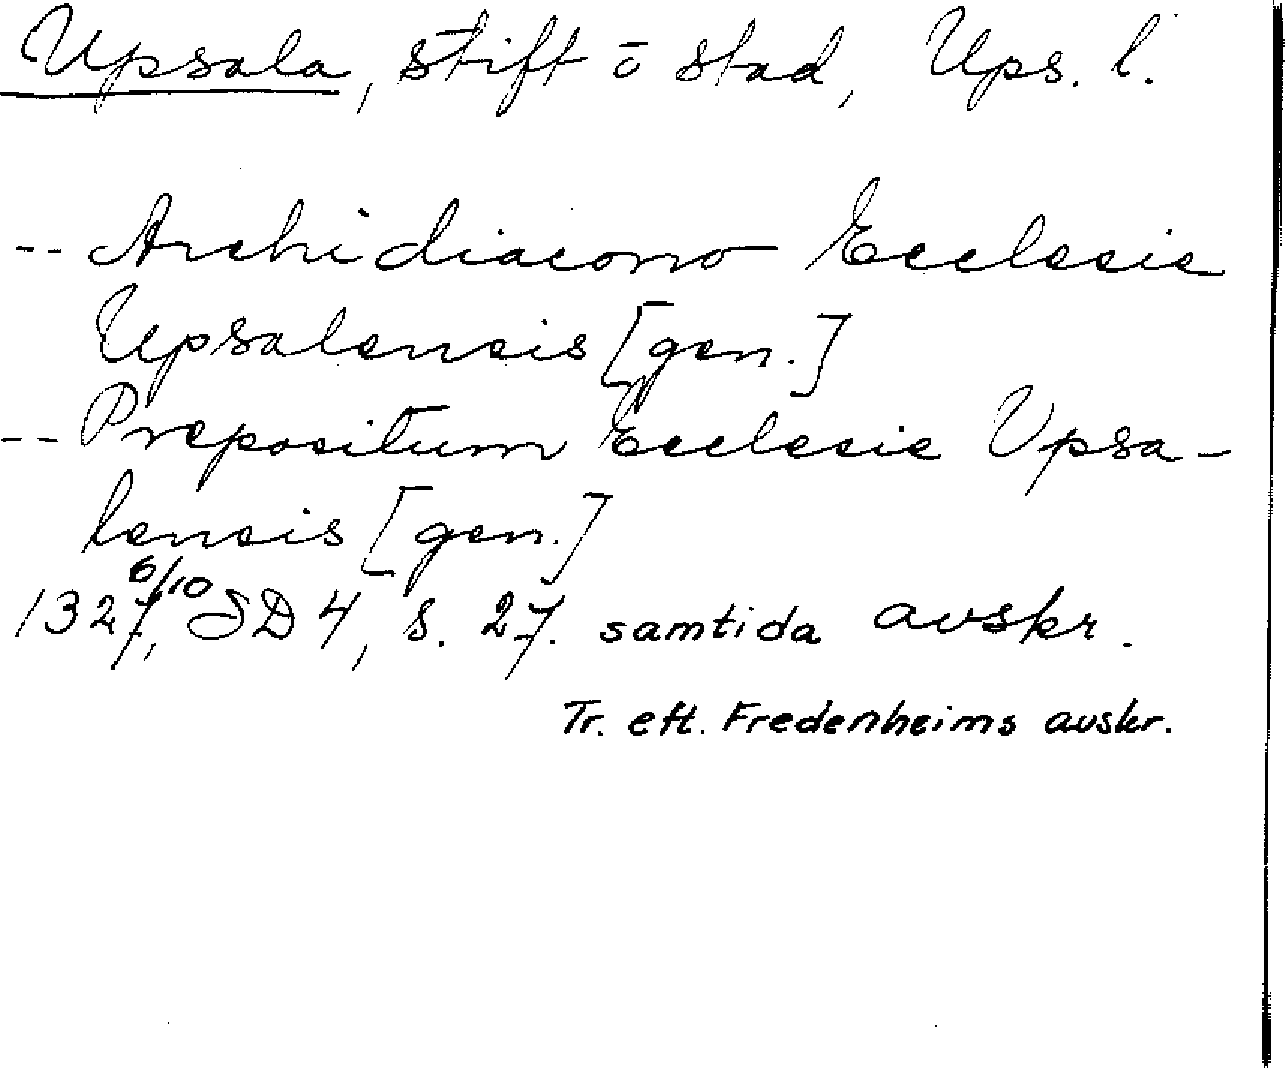 Upsala, stift o stad, Ups. l.
-- Archidiacono Ecclesie
Upsalensis [gen.]
-- Prepositum Ecclesie Vpsa-
lensis [gen.]
1327 6/10, SD 4, s. 27. samtida avskr.
Tr. eft. Fredenheims avskr.